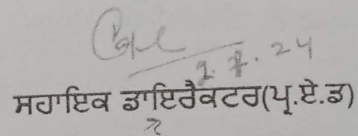 2.7.24
ਸਹਾਇਕ ਡਾਇਰੈਕਟਰ(ਪੂ.ਏ.ਡ)